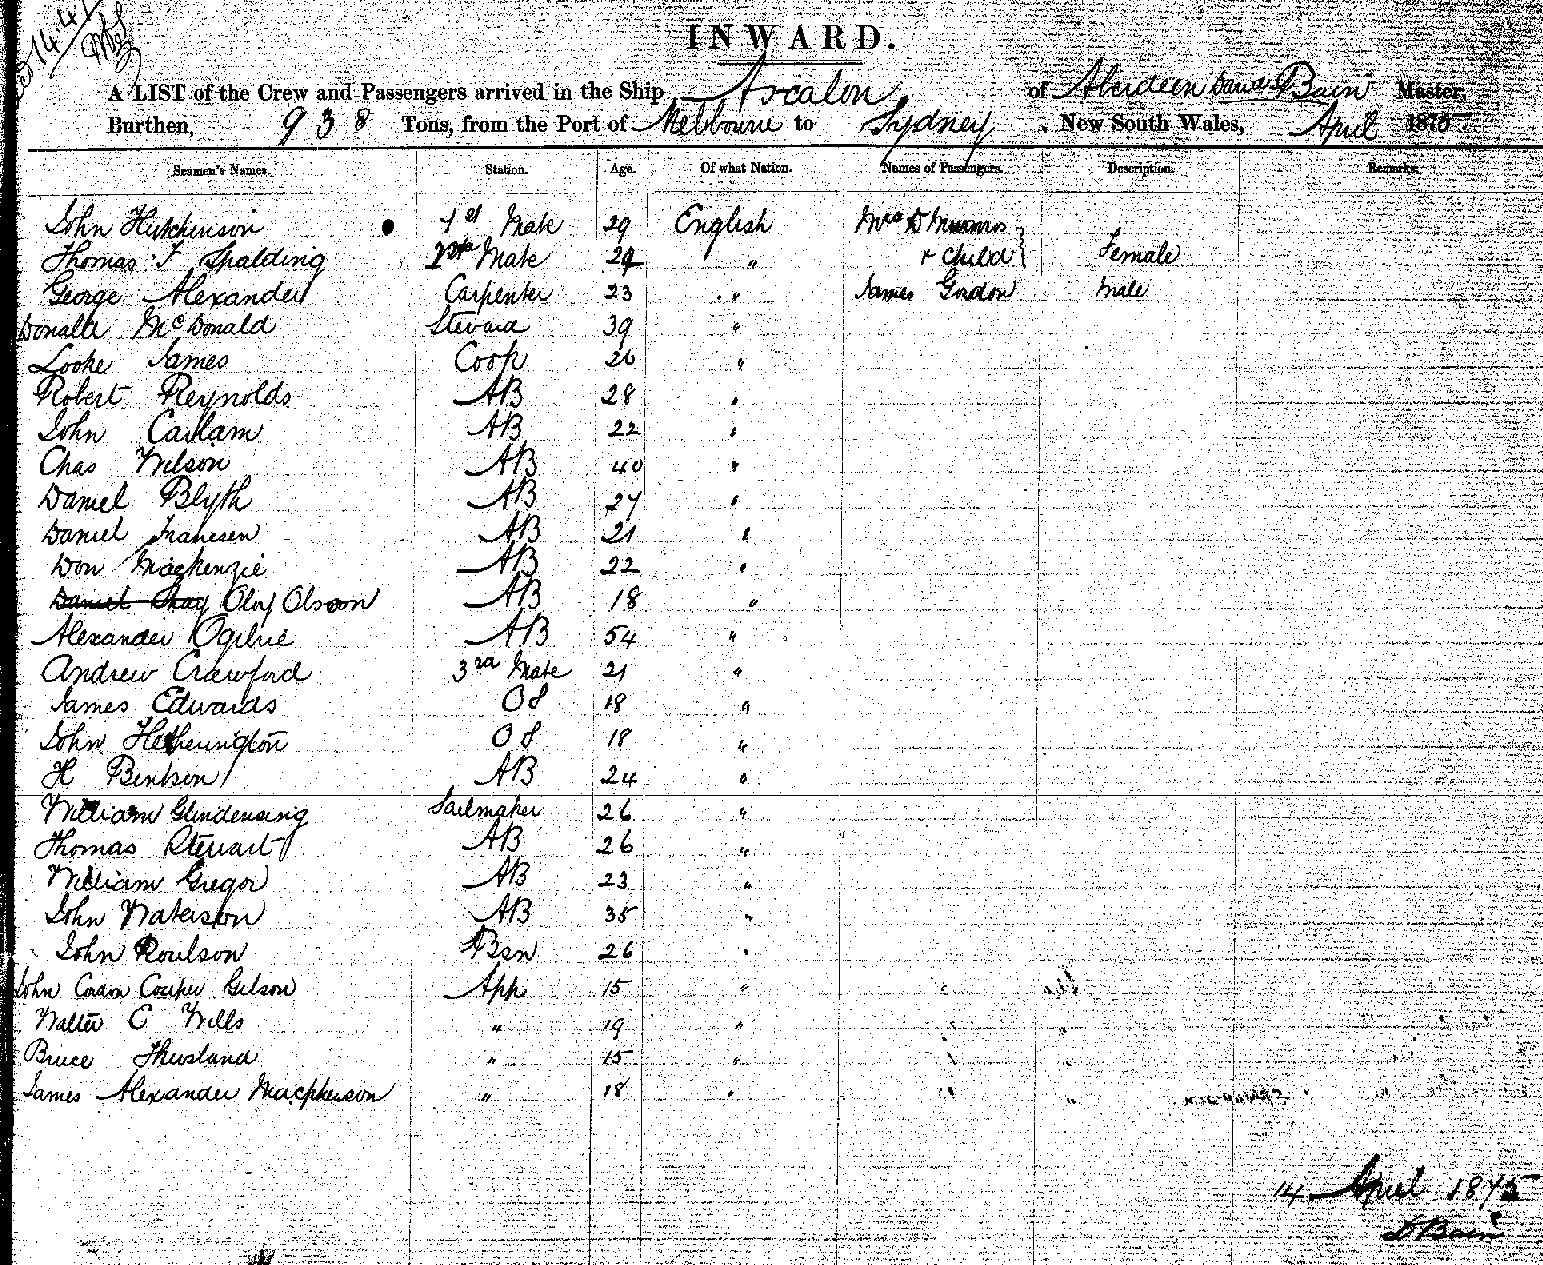 14.4
INWARD.
A LIST of the Crew and Passengers arrived in the Ship Ascalon of Aberdeen David Bain Master,
Burthen, 938 Tons, from the Port of Melbourne to Sydney, New South Wales, April 1875
Seamen's Names. Station. Age. Of what Nation. Names of Passengers. Description. Remarks.
John Hutchinson 1st Mate 29 English Mrs D Munros
Thomas F Spalding 2nd Mate 24 " + Child } Female
George Alexander Carpenter 23 " James Gordon Male
Donald McDonald Steward 39 "
Looke James Cook 26 "
Robert Reynolds AB 28 "
John Carlam AB 22 "
Chas Wilson AB 40 "
Daniel Blyth AB 27 "
Daniel Fransen AB 21 "
Don Mackenzie AB 22 "
Daniel Shay Olof Olsson AB 18 "
Alexander Ogilvie AB 54 "
Andrew Crawford 3rd Mate 21 "
James Edwards OS 18 "
John Hetherington OS 18 "
H Bentson AB 24 "
William Glendensing Sailmaker 26 "
Thomas Stewart AB 26 "
William Gregor AB 23 "
John Waterson AB 35 "
John Poulson Bsn 26 "
John Gordon Couper Gilson App 15 "
Walter C Wills " 19 "
Bruce " 15 "
James Alexander Macpherson " 18 "
14 April 1875
D Bain